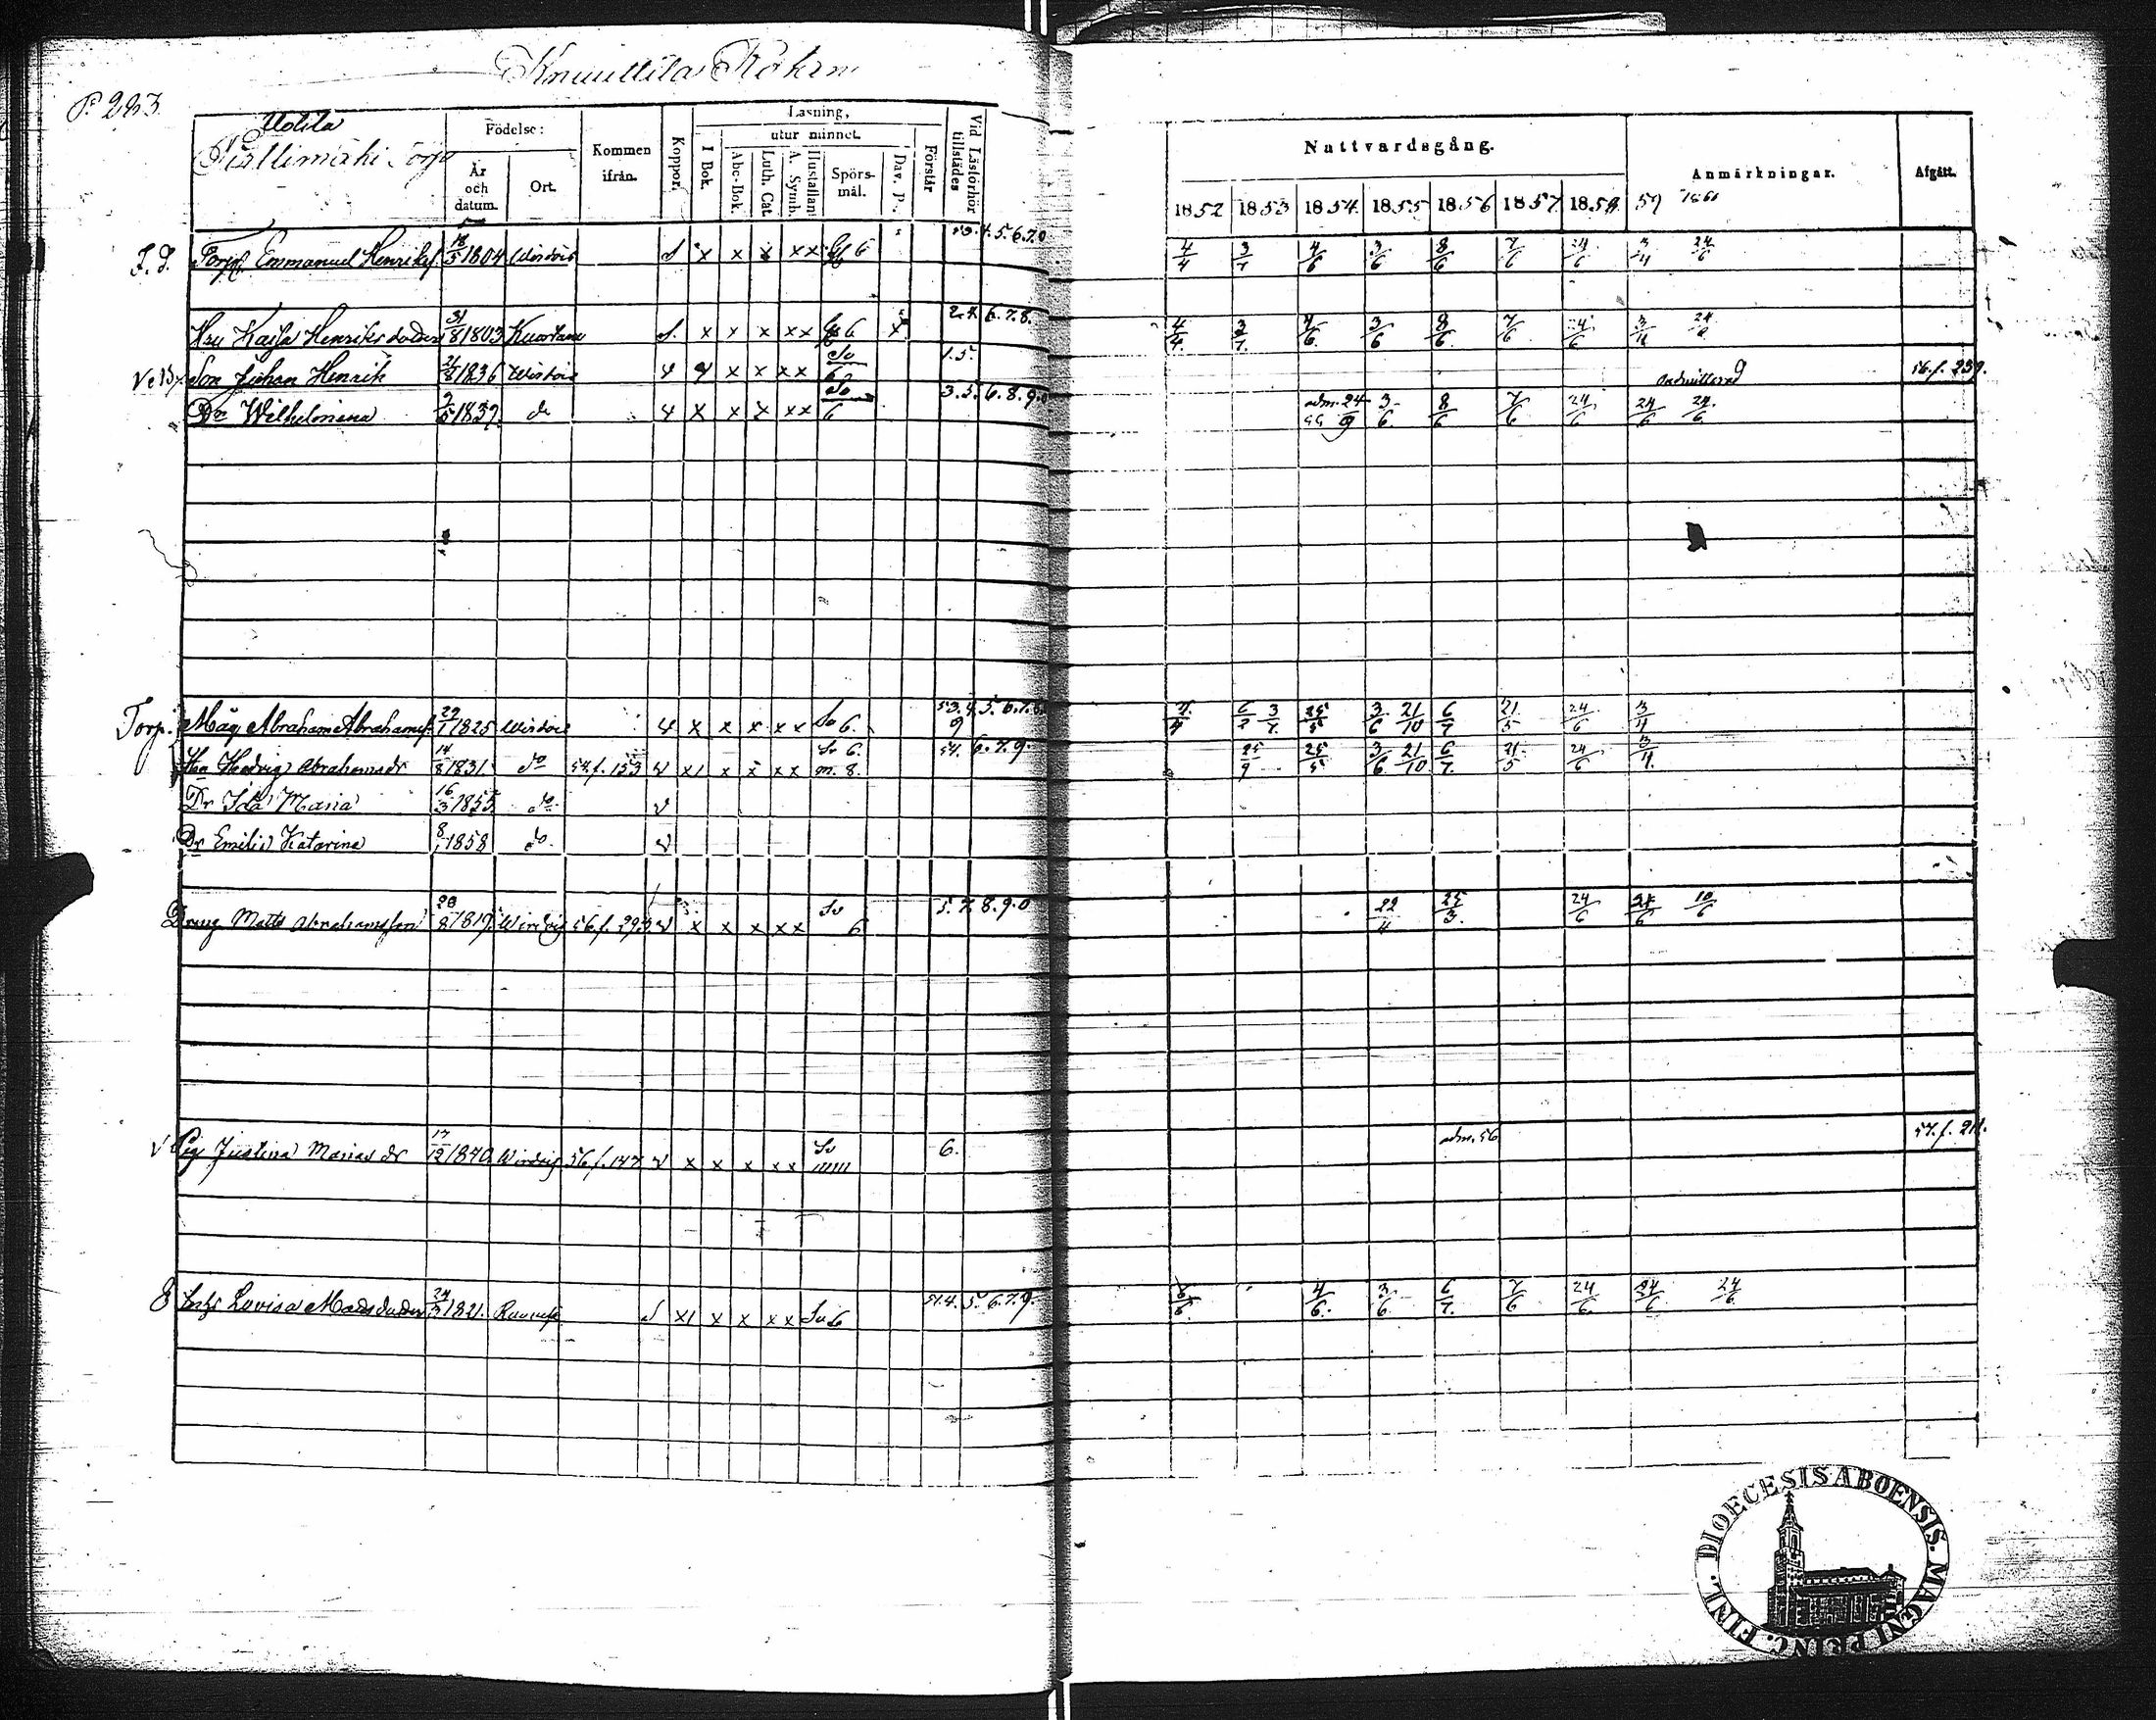 Knuuttila Rökem
P. 283
Uotila
Torp
Födelse:
År och datum.
Ort.
Kommen ifrån.
Koppor.
Läsning,
I Bok.
utur minnet.
Abc-Bok.
Luth. Cat.
A. Symb.
Hustaflan
Spörsmål.
Dav. Ps.
Förstår
Vid Läsförhör tillstädes
Nattvardsgång.
1852 1853 1854 1855 1856 1857 1858 59 1860
Anmärkningar.
Afgått.
Torp. Emmanuel Henriks. 18/5 1804 Wirdois x x x x x 6 4/4 3/7 4/6 3/6 8/6 7/6 24/6 3/4 24/6
Hru Kaisa Henriksdotter 31/8 1803 Kuortane x x x x x 6 x 2.4. 6.7.8. 4/4 3/7 4/6 3/6 8/6 7/6 24/6 3/4
Son Johan Henrik 21/8 1836 Wirdois x x x x 1.5. 56. f. 239.
Dr Wilhelmina 9/5 1839. do x x x x x 6 3.5. 6.8.9.0 adm. 24/9 3/6 8/6 7/6 24/6 24/6 24/6
Torp. Måg Abraham Abrahamss. 29/1 1825 Wirdois x x x x x So 6. 53.4.5.6.7.8. 9 6/7 3/7 25/5 3/6 21/10 6/7 21/5 24/6 3/4
Hu Hedvig Abrahamsdr 14/8 1831. do 54. f. 153 v x x x x x So 6. m. 8. 54. 6.7.9. 25/9 25/5 3/6 21/10 6/7. 21/5 24/6 3/4.
Dr Ida Maria 16/3 1855 do v
Dr Emilia Katarina 8/1 1858 do. v
Dreng Matts Abrahamsson 28/8 1819. Wirdois 56. f. 293 v x x x x x So 6 5.7.8.9.0 22/4 25/3. 24/6 24/6 10/6
v Pig. Justina Mariasdr 17/12 1840 Wirdois 56. f. 147 v x x x x x So 6. adm. 56 57. f. 211.
Lovisa Madsdotter 24/7 1821. x x x x x So 6 51.4.5.6.7.9. 6/6. 4/6. 3/6. 6/7. 7/6 24/6. 24/6. 24/6.
DIOECESIS ABOENSIS. MAGNI PRINC. FINL.